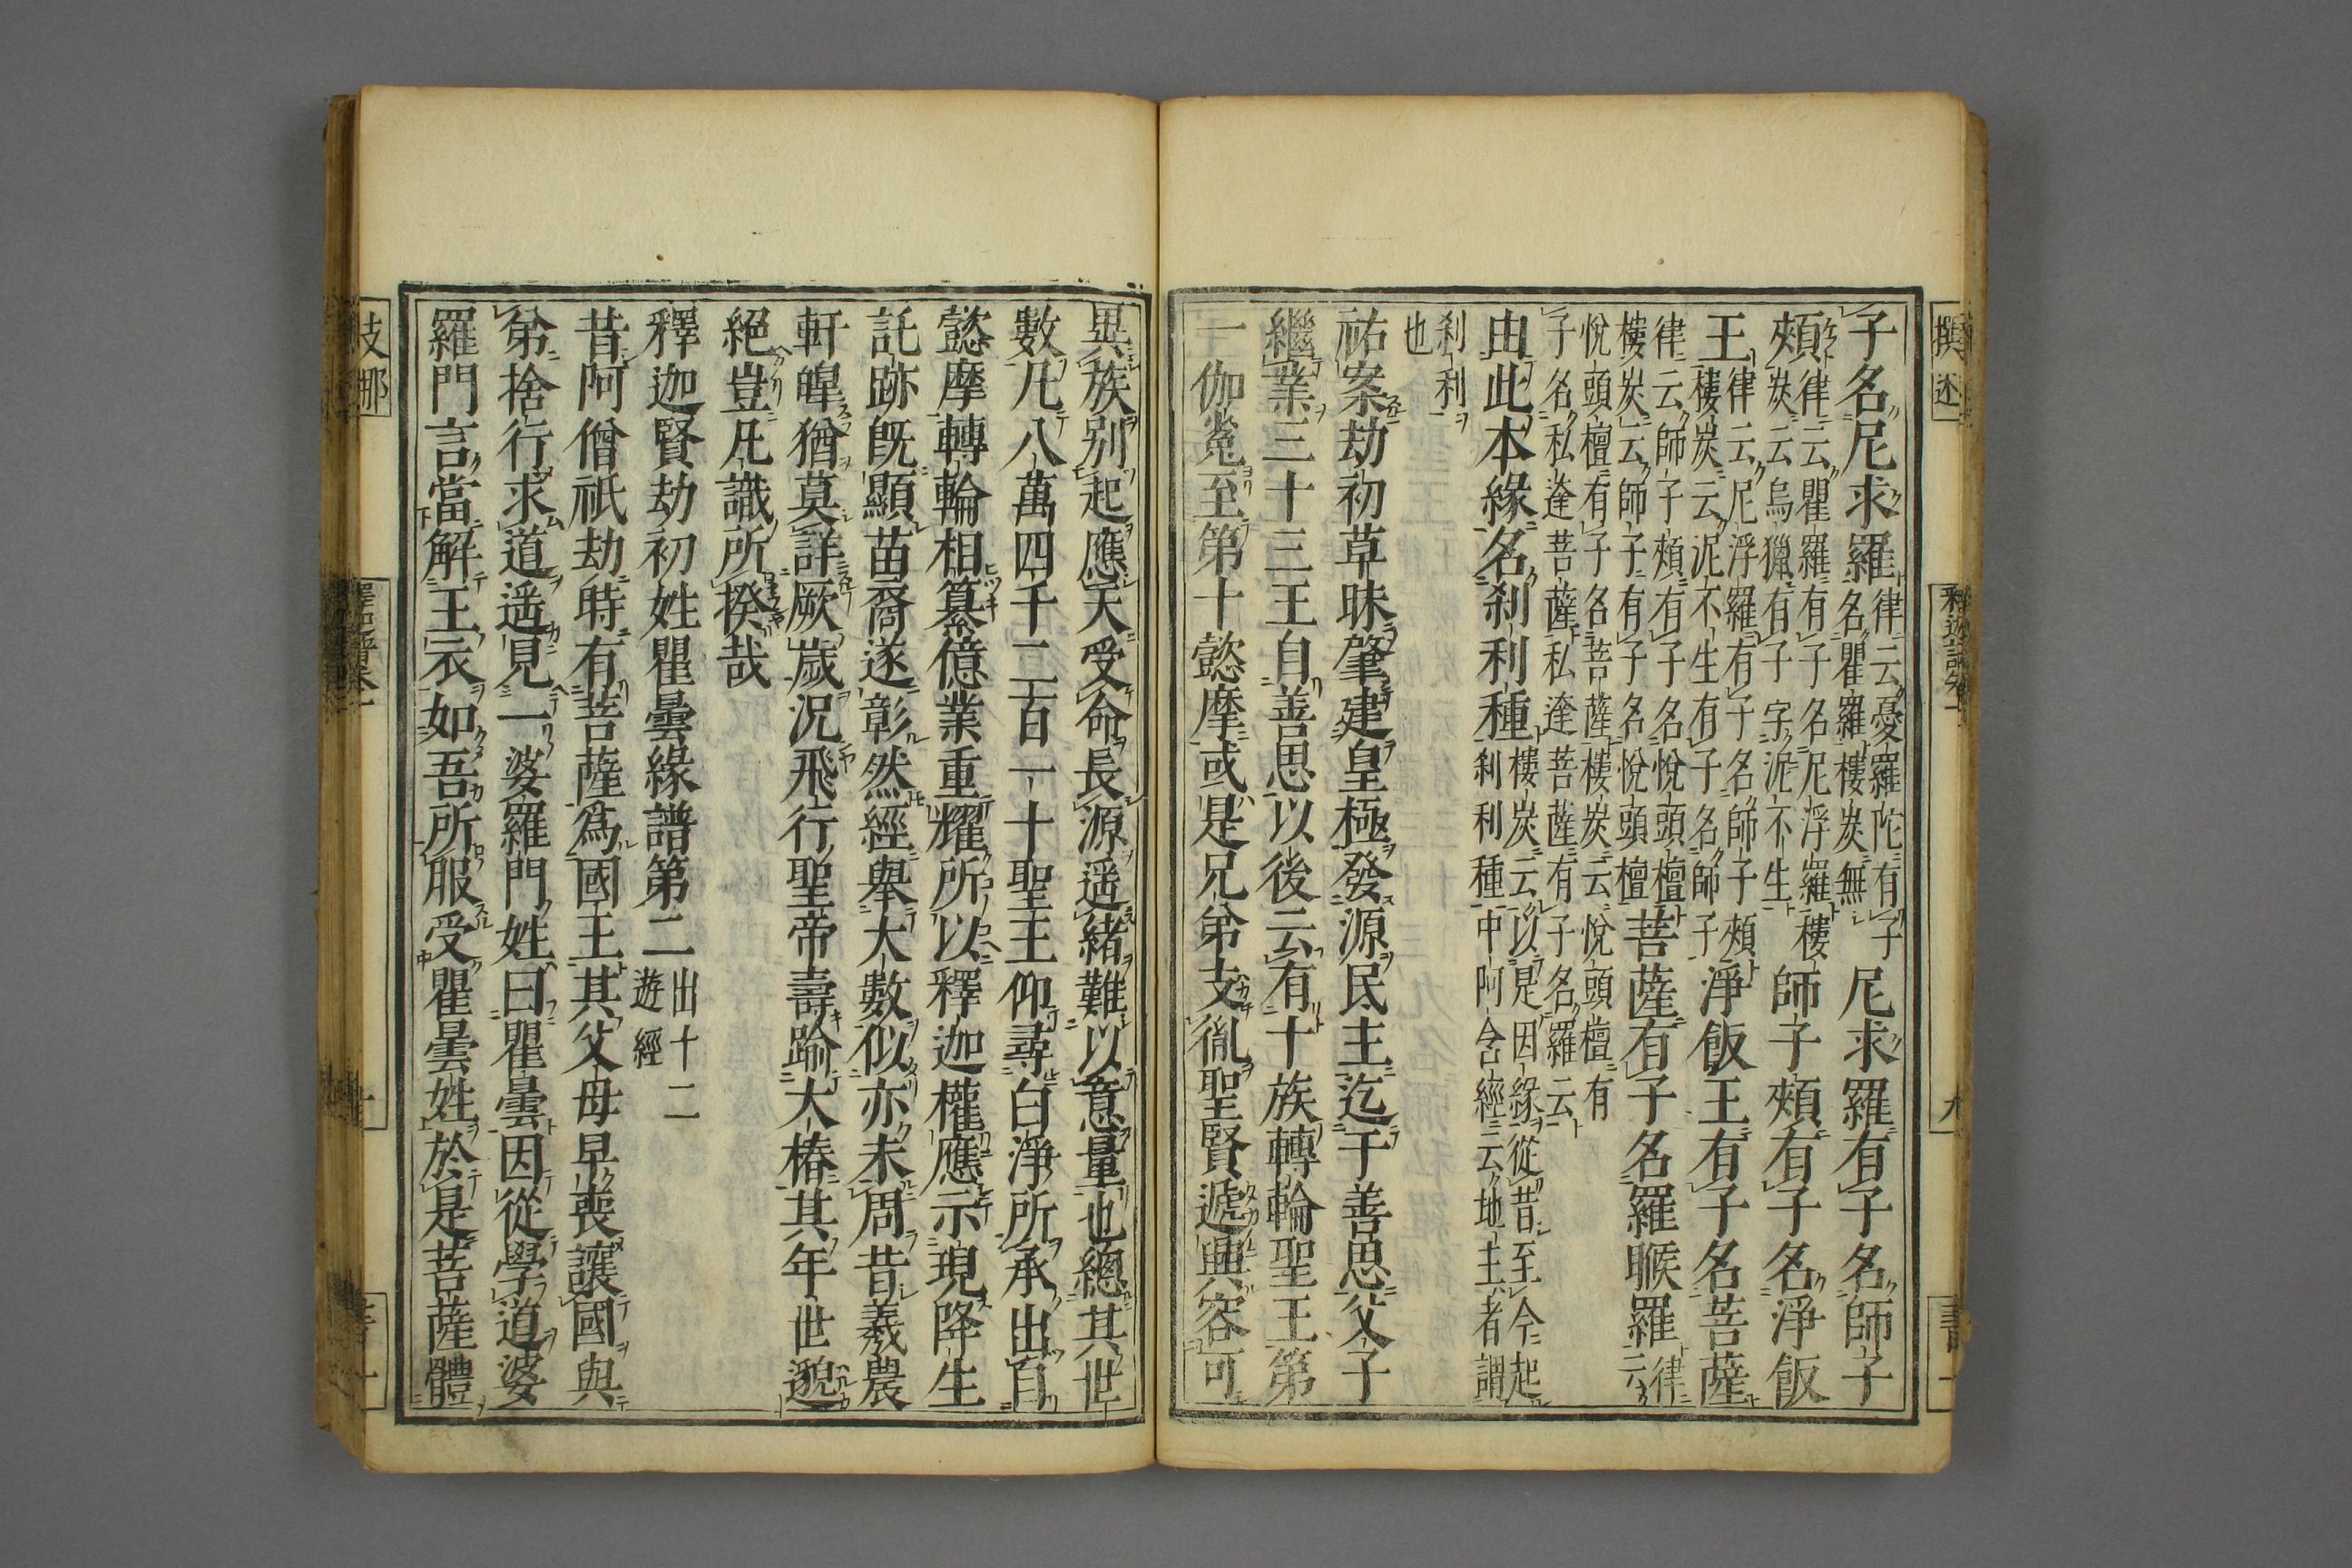 撰述
釋迦譜卷一
九
子名尼求羅律云憂羅陀有子
名瞿羅樓炭無尼求羅有子名師子
頰律云瞿羅有子名尼浮羅樓
炭云烏獵有子字泥不生師子頰有子名淨飯
王律云尼浮羅有子名師子頰
樓炭云泥不生有子名師子淨飯王有子名菩薩
律云師子頰有子名悅頭檀
樓炭云師子有子名悅頭檀菩薩有子名羅睺羅律云
悅頭檀有子名菩薩樓炭云悅頭檀有
子名私達菩薩私達菩薩有子名羅云
由此本緣名剎利種樓炭云以是因緣從昔至今起
剎利種中阿含經云地主者謂
剎利
也
祐案劫初草昧肇建皇極發源民主迄于善思父子
繼業三十三王自善思以後云有十族轉輪聖王第
一伽㝹至第十懿摩或是兄弟支胤聖賢遞興容可
異族別起應天受命長源遥緒難以意量也總其世
數凡八萬四千二百一十聖王仰尋白淨所承出自
懿摩轉輪相纂億業重耀所以釋迦權應示現降生
託跡既顯苗裔遂彰然經舉大數似亦未周昔羲農
軒皥猶莫詳厥歲況飛行聖帝壽踰大椿其年世邈
絕豈凡識所揆哉
釋迦賢劫初姓瞿曇緣譜第二出十二
遊經
昔阿僧祇劫時有菩薩爲國王其父母早喪讓國與
弟捨行求道遥見一婆羅門姓曰瞿曇因從學道婆
羅門言當解王衣如吾所服受瞿曇姓於是菩薩體
支那